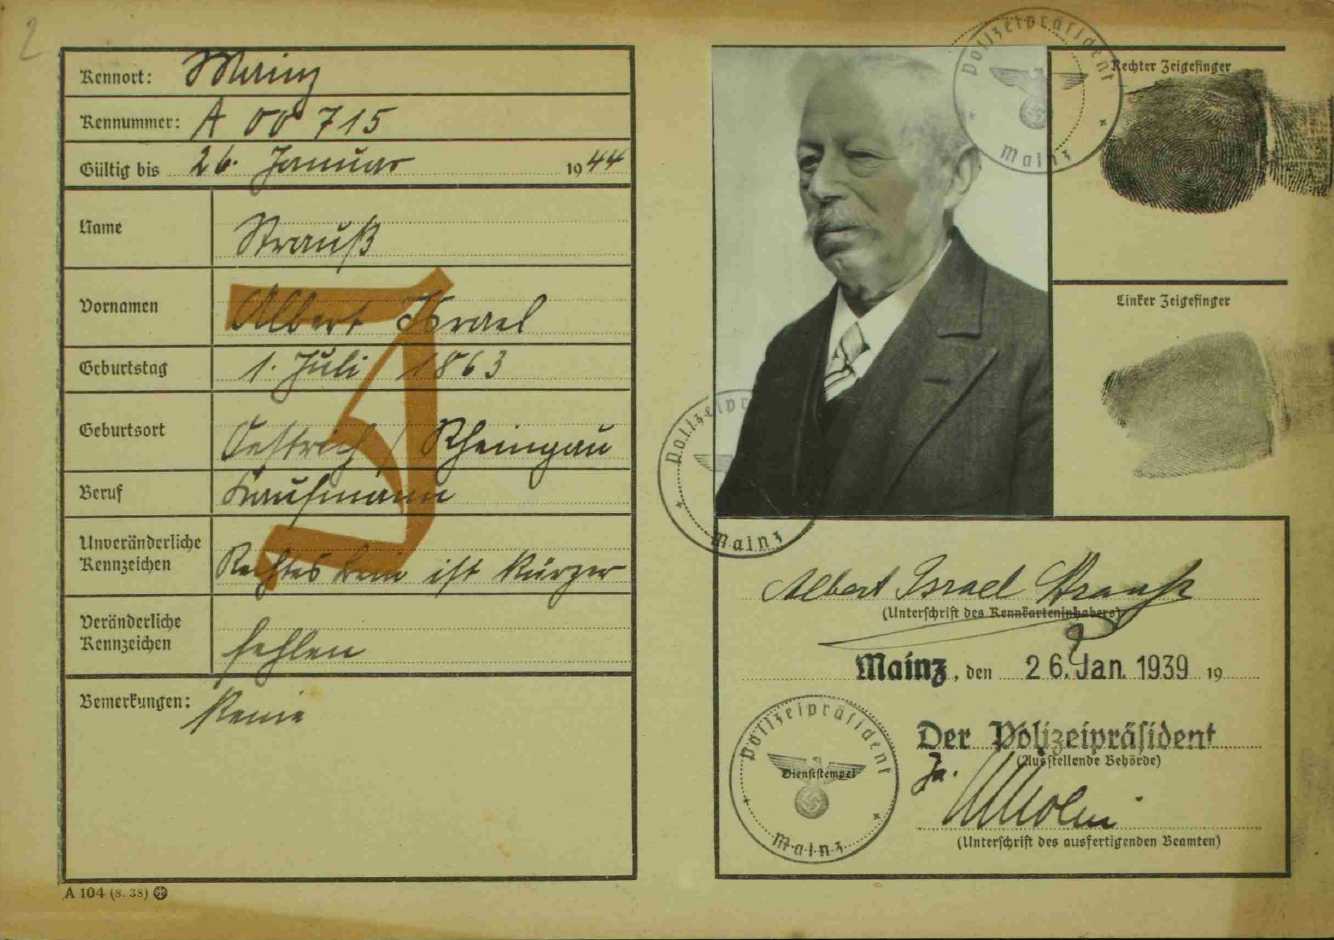 2
Kennort: Mainz
Kennummer: A 00 715
Gültig bis 26. Januar 1944
Name Strauß
Vornamen Albert Israel
Geburtstag 1. Juli 1863
Geburtsort Oestrich / Rheingau
Beruf Kaufmann
Unveränderliche Kennzeichen Rechtes Bein ist kürzer
Veränderliche Kennzeichen fehlen
Bemerkungen: Keine
J
A 104 (8. 38)
Polizeipräsident
Mainz
Rechter Zeigefinger
Linker Zeigefinger
Polizeiprä
Mainz
Albert Israel Strauß
(Unterschrift des Kennkarteninhabers)
Mainz, den 26. Jan. 1939 19
Der Polizeipräsident
(Ausstellende Behörde)
Polizeipräsident
Dienststempel
Mainz
(Unterschrift des ausfertigenden Beamten)